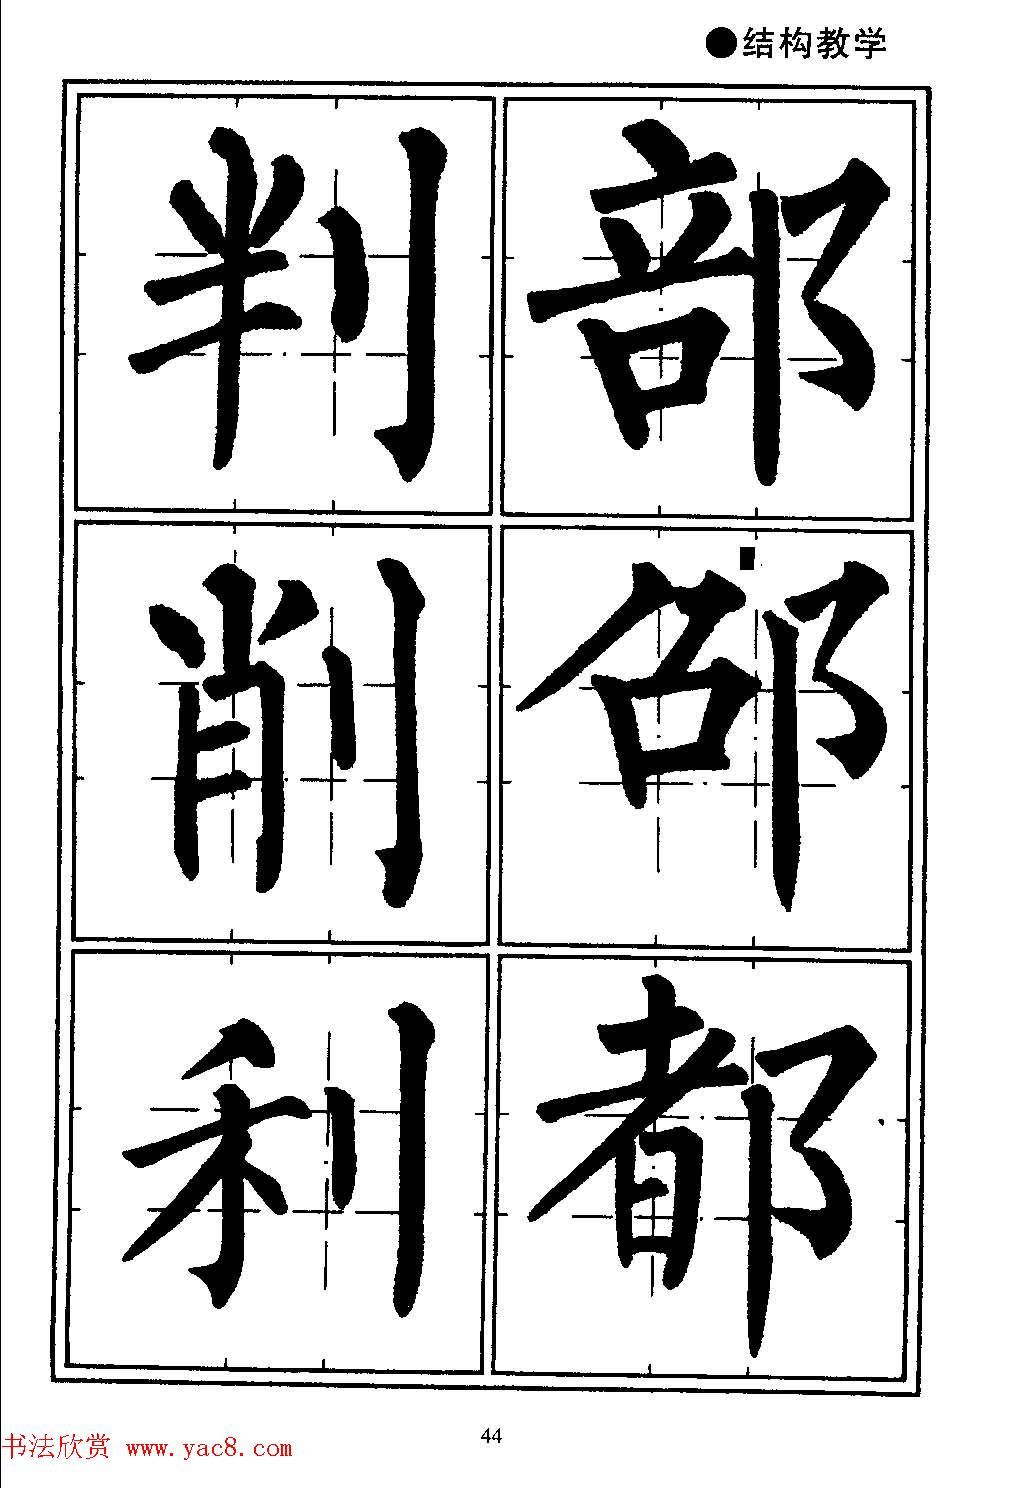 ●结构教学
判部
削邵
利都
44
书法欣赏 www.yac8.com